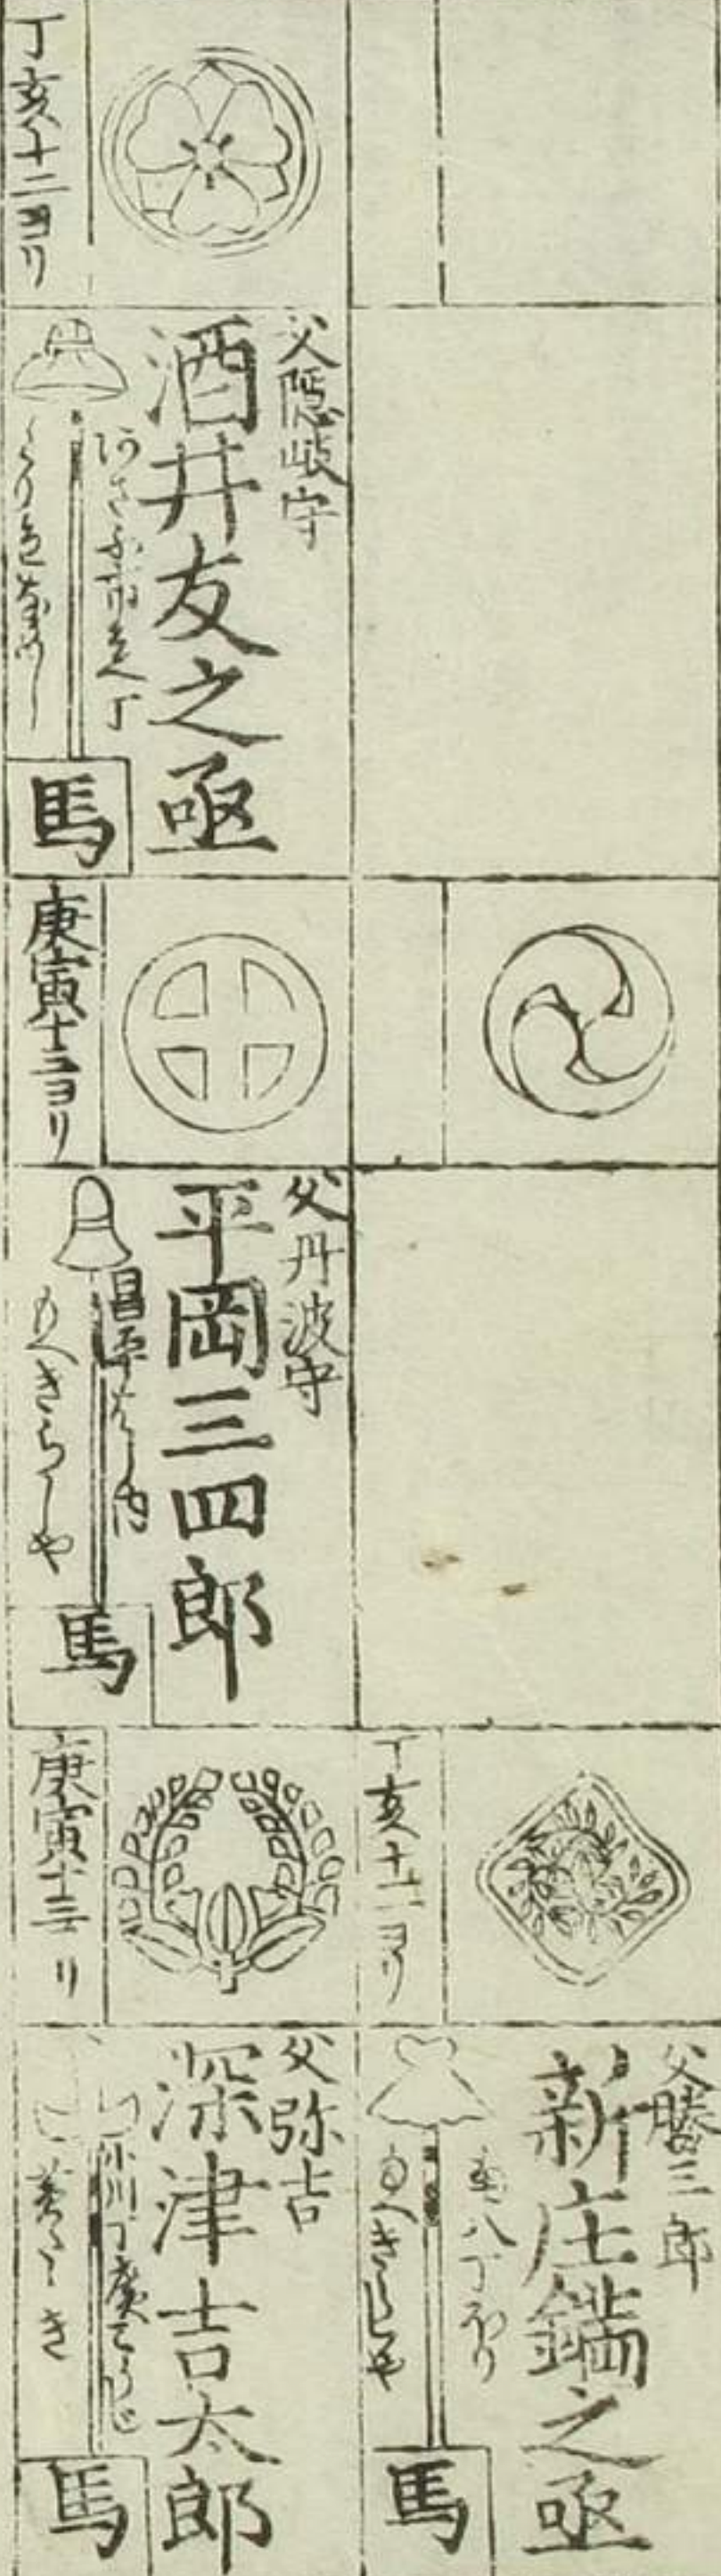 丁亥十二ヨリ
父隠岐守
酒井友之亟
馬
庚寅十二ヨリ
父丹波守
平岡三四郎
昌平はし内
もへきらしや
馬
丁亥十二ヨリ
父勝三郎
新庄鐺之亟
八丁ほり
もへきらしや
馬
庚寅十二ヨリ
父弥吉
深津吉太郎
小川丁廣こうじ
馬